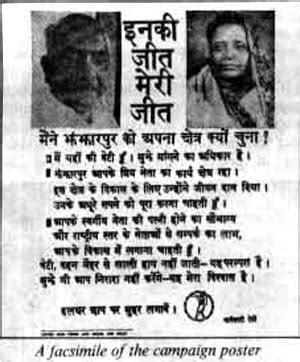 इनकी
जीत
मेरी
जीत
मैंने झंझारपुर को अपना क्षेत्र क्यों चुना !
मैं यहाँ की बेटी हूँ। मुझे मांगने का अधिकार है।
झंझारपुर आपके प्रिय नेता का कार्य क्षेत्र रहा।
इस क्षेत्र के विकास के लिए उन्होंने जीवन दान दिया।
उनके अधूरे सपने को पूरा करना चाहती हूँ।
आपके स्वर्गीय नेता की पत्नी होने का सौभाग्य
और राष्ट्रीय स्तर के नेताओं से सम्पर्क का लाभ,
आपके विकास में लगाना चाहती हूँ।
बेटी, बहन नैहर से खाली हाथ नहीं जाती-यह परम्परा है।
मुझे भी आप निराश नहीं करेंगे-यह मेरा विश्वास है।
हलधर छाप पर मुहर लगावें।
A facsimile of the campaign poster